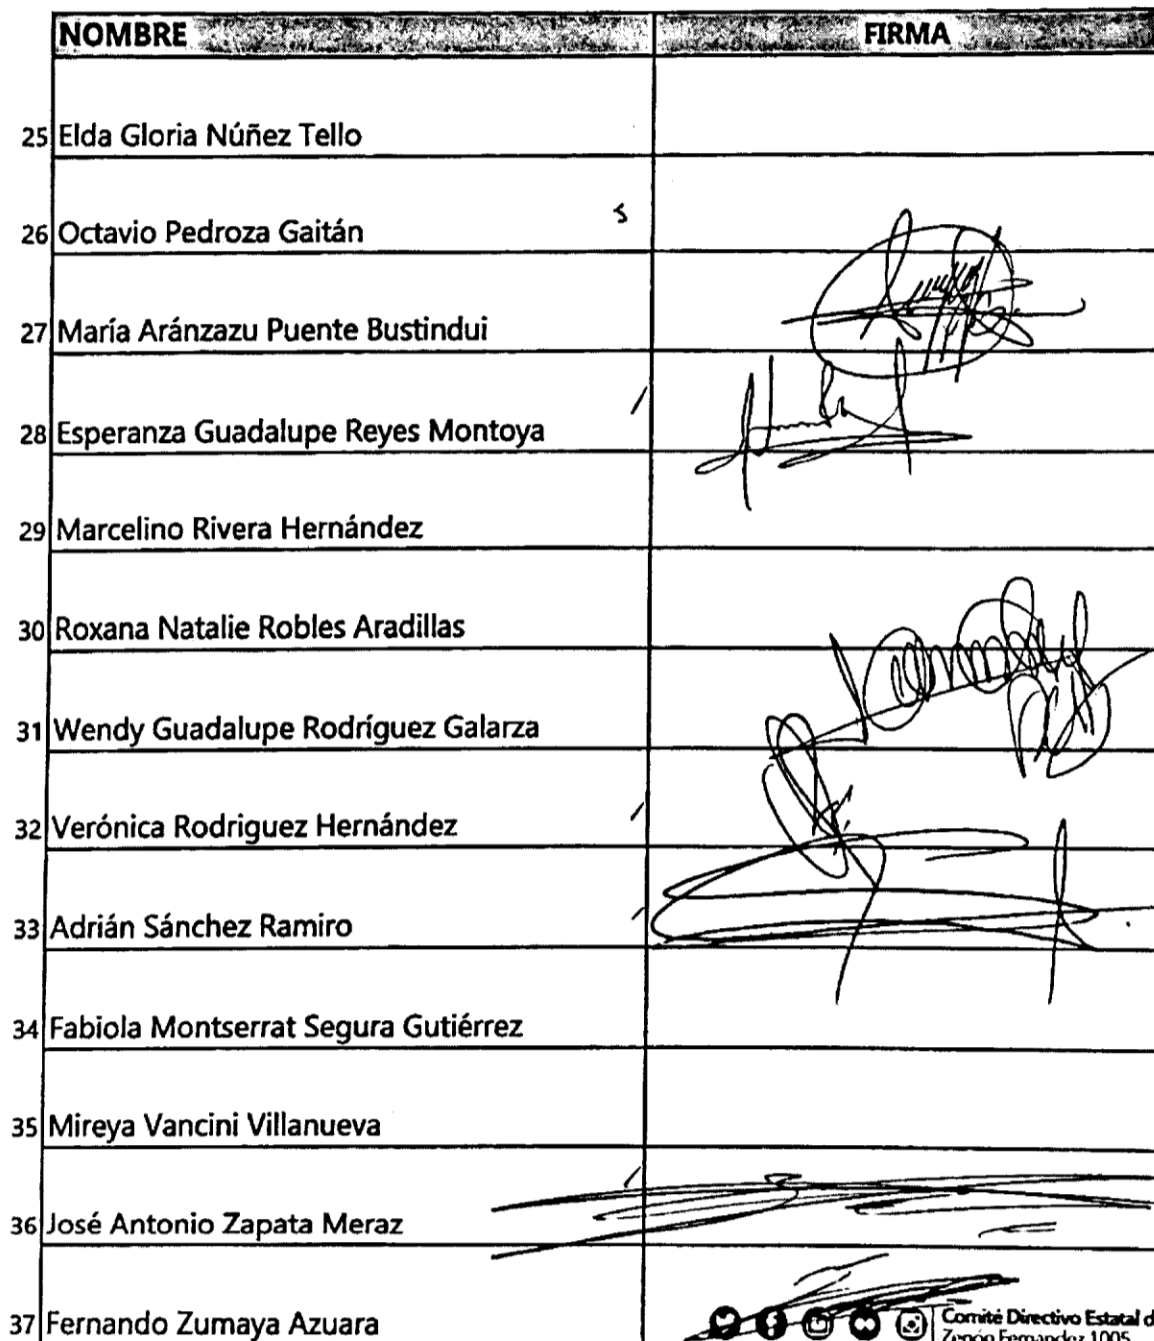 NOMBRE FIRMA
25 Elda Gloria Núñez Tello
26 Octavio Pedroza Gaitán
27 María Aránzazu Puente Bustindui
28 Esperanza Guadalupe Reyes Montoya
29 Marcelino Rivera Hernández
30 Roxana Natalie Robles Aradillas
31 Wendy Guadalupe Rodríguez Galarza
32 Verónica Rodriguez Hernández
33 Adrián Sánchez Ramiro
34 Fabiola Montserrat Segura Gutiérrez
35 Mireya Vancini Villanueva
36 José Antonio Zapata Meraz
37 Fernando Zumaya Azuara
Comité Directivo Estatal d
Zenón Fernandez 1005